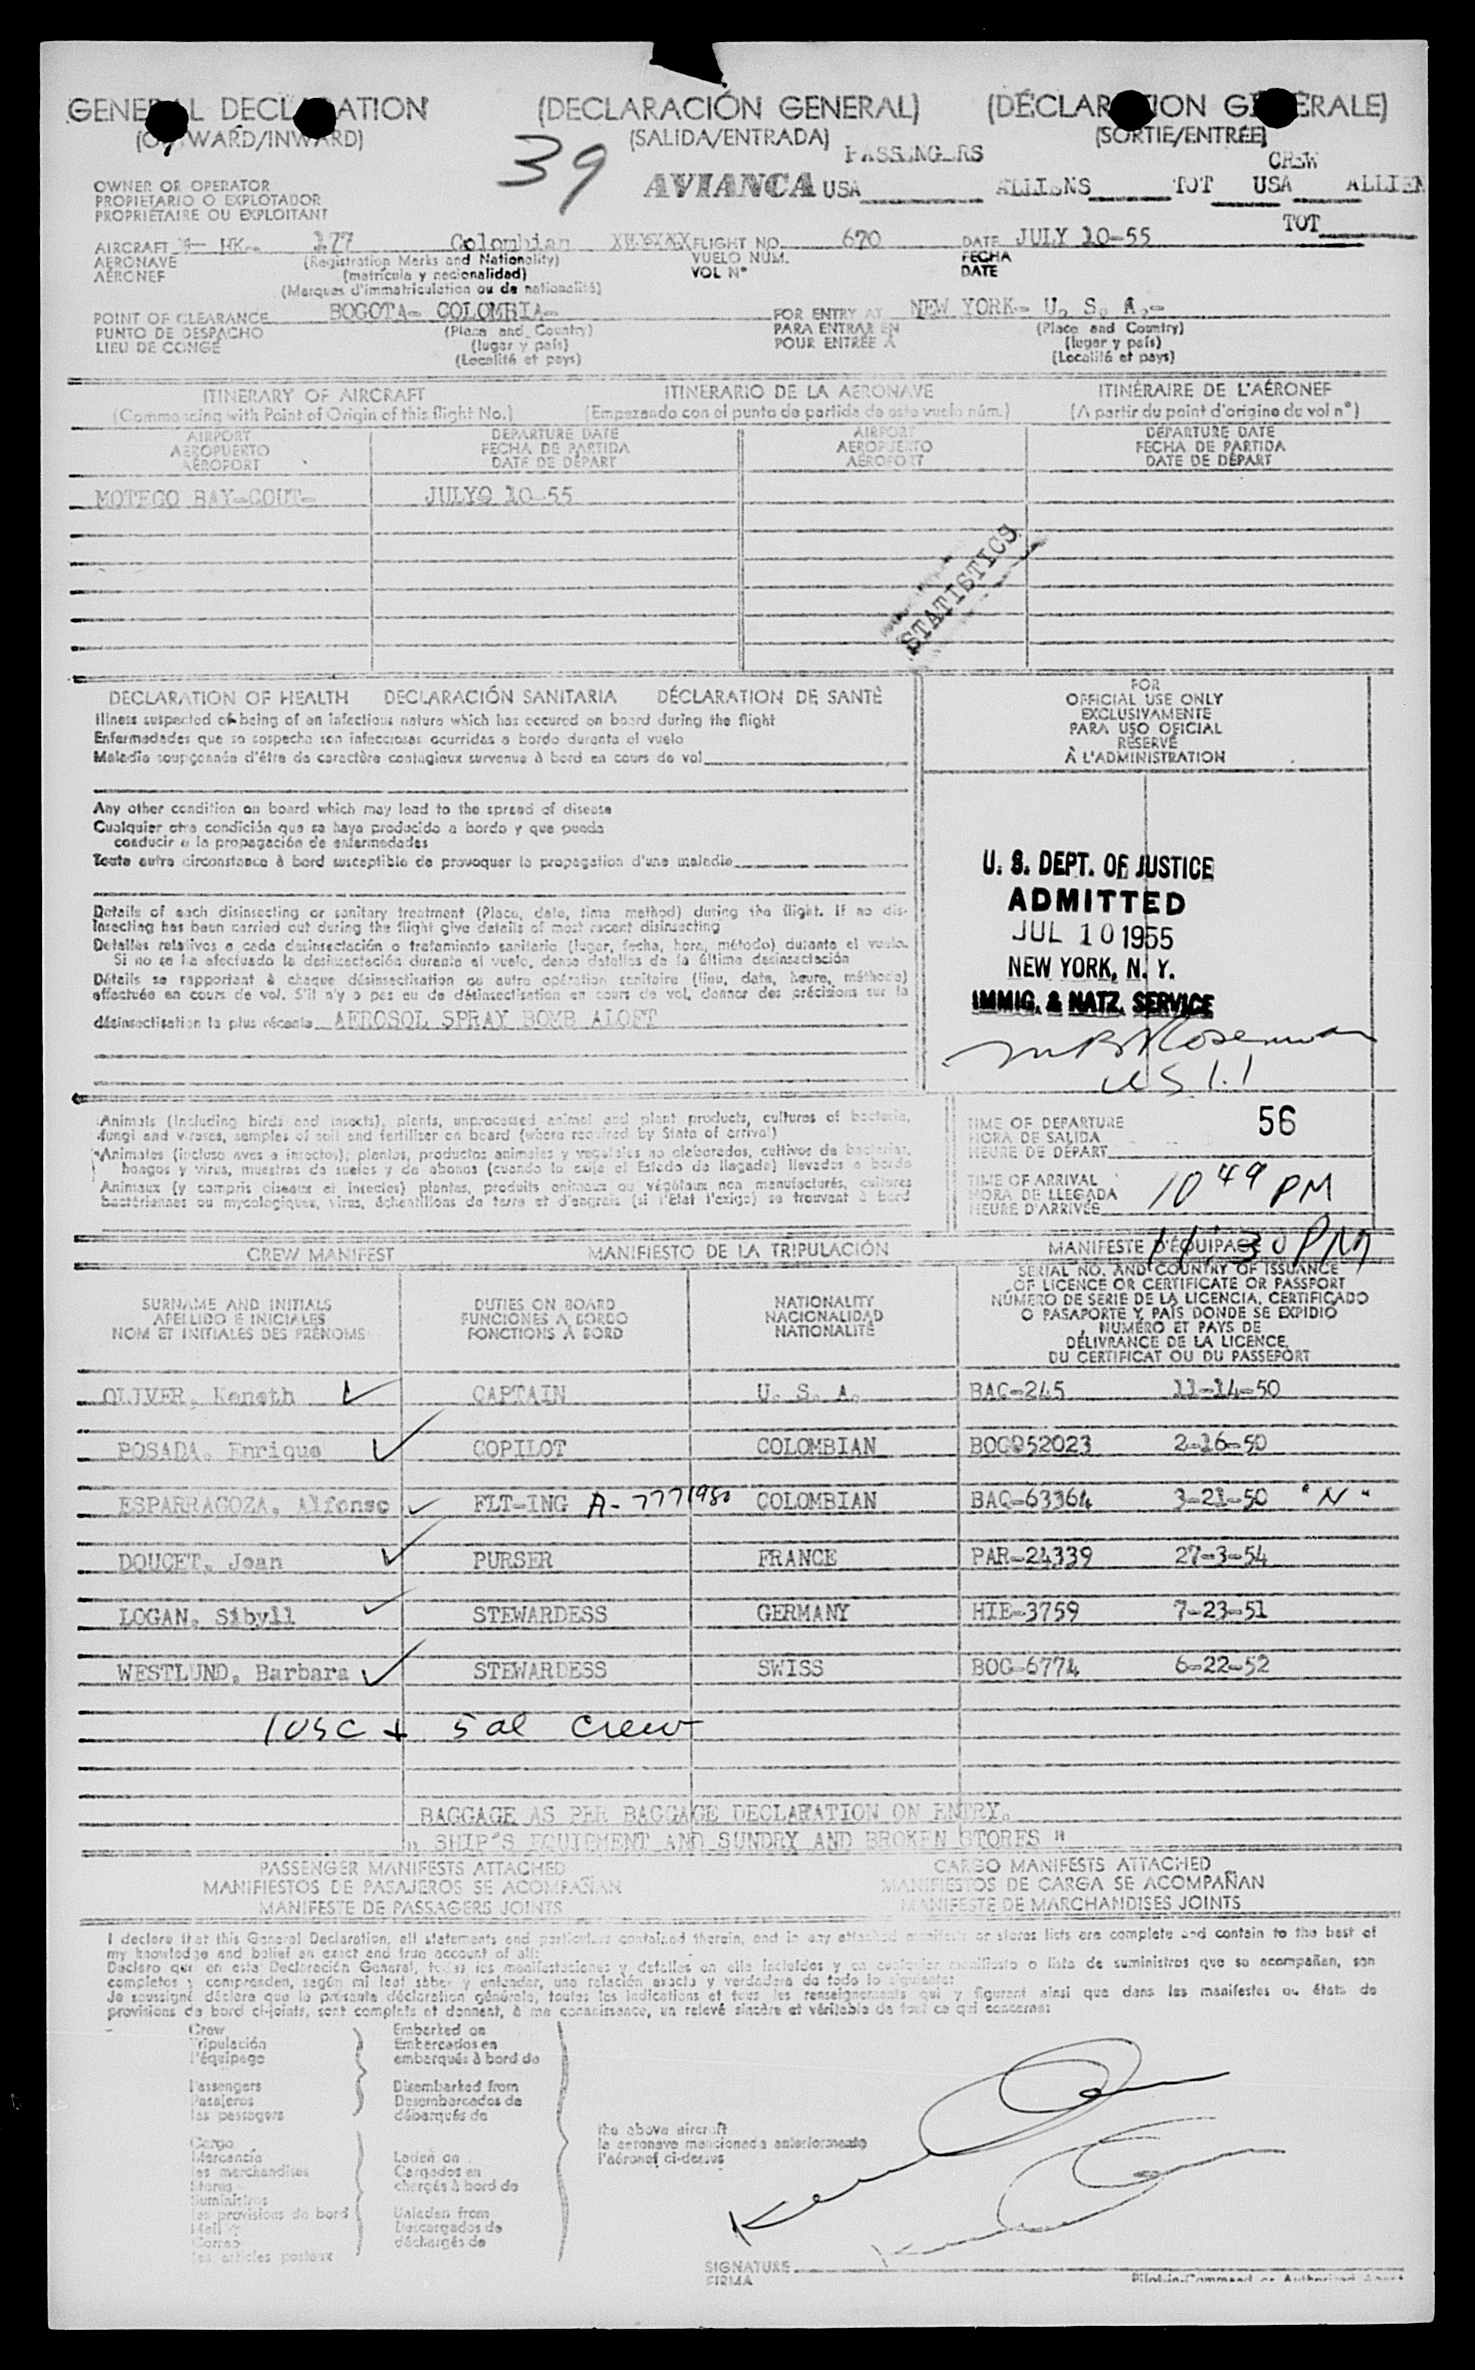 GENERAL DECLARATION (DECLARACIÓN GENERAL) (DÉCLARATION GÉNÉRALE)
(OUTWARD/INWARD) (SALIDA/ENTRADA) (SORTIE/ENTRÉE)
39
PASSENGERS CREW
OWNER OR OPERATOR
PROPIETARIO O EXPLOTADOR
PROPRIÉTAIRE OU EXPLOITANT
AVIANCA USA ALLIENS TOT USA ALLIEN
TOT
AIRCRAFT HK- 177 Colombian FLIGHT NO. 670 DATE JULY 10-55
AERONAVE (Registration Marks and Nationality) VUELO NUM. FECHA
AÉRONEF (matrícula y nacionalidad) VOL N° DATE
(Marques d'immatriculation ou de nationalité)
POINT OF CLEARANCE BOGOTA- COLOMBIA- FOR ENTRY AT NEW YORK- U. S. A.-
PUNTO DE DESPACHO (Place and Country) PARA ENTRAR EN (Place and Country)
LIEU DE CONGÉ (lugar y país) POUR ENTRÉE A (lugar y país)
(Localité et pays) (Localité et pays)
ITINERARY OF AIRCRAFT ITINERARIO DE LA AERONAVE ITINÉRAIRE DE L'AÉRONEF
(Commencing with Point of Origin of this flight No.) (Empezando con el punto de partida de este vuelo núm.) (A partir du point d'origine du vol n°)
AIRPORT DEPARTURE DATE AIRPORT DEPARTURE DATE
AEROPUERTO FECHA DE PARTIDA AEROPUERTO FECHA DE PARTIDA
AÉROPORT DATE DE DÉPART AÉROPORT DATE DE DÉPART
MOTEGO BAY-GOUT- JULY9 10-55
STATISTICS
DECLARATION OF HEALTH DECLARACIÓN SANITARIA DÉCLARATION DE SANTÉ
Illness suspected of being of an infectious nature which has occured on board during the flight
Enfermedades que se sospecha son infecciosas ocurridas a bordo durante el vuelo
Maladie soupçonnée d'être de caractère contagieux survenue à bord en cours de vol
Any other condition on board which may lead to the spread of disease
Cualquier otra condición que se haya producido a bordo y que pueda
conducir a la propagación de enfermedades
Toute autre circonstance à bord susceptible de provoquer la propagation d'une maladie
Details of each disinsecting or sanitary treatment (Place, date, time method) during the flight. If no dis-
insecting has been carried out during the flight give details of most recent disinsecting
Detalles relativos a cada desinsectación o tratamiento sanitario (lugar, fecha, hora, método) durante el vuelo.
Si no se ha efectuado la desinsectación durante el vuelo, dense detalles de la última desinsectación
Détails se rapportant à chaque désinsectisation ou autre opération sanitaire (lieu, date, heure, méthode)
effectuée en cours de vol. S'il n'y a pas eu de désinsectisation en cours de vol, donner des précisions sur la
désinsectisation la plus récente AEROSOL SPRAY BOMB ALOFT
FOR
OFFICIAL USE ONLY
EXCLUSIVAMENTE
PARA USO OFICIAL
RÉSERVÉ
À L'ADMINISTRATION
U. S. DEPT. OF JUSTICE
ADMITTED
JUL 10 1955
NEW YORK, N. Y.
IMMIG. & NATZ. SERVICE
Animals (Including birds and insects), plants, unprocessed animal and plant products, cultures of bacteria,
fungi and viruses, samples of soil and fertilizer on board (where required by State of arrival)
Animales (incluso aves e insectos), plantas, productos animales y vegetales no elaborados, cultivos de bacterias,
hongos y virus, muestras de suelos y de abonos (cuando lo exija el Estado de llegada) llevados a bordo
Animaux (y compris oiseaux et insectes) plantes, produits animaux ou végétaux non manufacturés, cultures
bactériennes ou mycologiques, virus, échantillons de terre et d'engrais (si l'État l'exige) se trouvant à bord
TIME OF DEPARTURE 56
HORA DE SALIDA
HEURE DE DÉPART
TIME OF ARRIVAL 10 49 PM
HORA DE LLEGADA
HEURE D'ARRIVÉE
11:30 PM
CREW MANIFEST MANIFIESTO DE LA TRIPULACIÓN MANIFESTE D'ÉQUIPAGE
SURNAME AND INITIALS DUTIES ON BOARD NATIONALITY
APELLIDO E INICIALES FUNCIONES A BORDO NACIONALIDAD
NOM ET INITIALES DES PRÉNOMS FONCTIONS À BORD NATIONALITÉ
SERIAL NO. AND COUNTRY OF ISSUANCE
OF LICENCE OR CERTIFICATE OR PASSPORT
NÚMERO DE SERIE DE LA LICENCIA, CERTIFICADO
O PASAPORTE Y PAÍS DONDE SE EXPIDIÓ
NUMÉRO ET PAYS DE
DÉLIVRANCE DE LA LICENCE,
DU CERTIFICAT OU DU PASSEPORT
OLIVER, Keneth CAPTAIN U. S. A. BAC-245 11-14-50
POSADA, Enrique COPILOT COLOMBIAN BOG952023 2-16-50
ESPARRAGOZA, Alfonso FLT-ING A-7771980 COLOMBIAN BAQ-63364 3-21-50 "N"
DOUCET, Jean PURSER FRANCE PAR-24339 27-3-54
LOGAN, Sibyll STEWARDESS GERMANY HIE-3759 7-23-51
WESTLUND, Barbara STEWARDESS SWISS BOG-6774 6-22-52
1 USC + 5 al crew
BAGGAGE AS PER BAGGAGE DECLARATION ON ENTRY.
" SHIP'S EQUIPMENT AND SUNDRY AND BROKEN STORES "
PASSENGER MANIFESTS ATTACHED CARGO MANIFESTS ATTACHED
MANIFIESTOS DE PASAJEROS SE ACOMPAÑAN MANIFIESTOS DE CARGA SE ACOMPAÑAN
MANIFESTE DE PASSAGERS JOINTS MANIFESTE DE MARCHANDISES JOINTS
I declare that this General Declaration, all statements and particulars contained therein, and in any attached manifests or stores lists are complete and contain to the best of
my knowledge and belief an exact and true account of all:
Declaro que en esta Declaración General, todas las manifestaciones y detalles en ella incluidos y en cualquier manifiesto o lista de suministros que se acompañan, son
completos y comprenden, según mi leal saber y entender, una relación exacta y verdadera de todo lo siguiente:
Je soussigné déclare que la présente déclaration générale, toutes les indications et tous les renseignements qui y figurent ainsi que dans les manifestes ou états de
provisions de bord ci-joints, sont complets et donnent, à ma connaissance, un relevé sincère et véritable de tout ce qui concerne:
Crew Embarked on
Tripulación Embarcados en
l'équipage embarqués à bord de
Passengers Disembarked from
Pasajeros Desembarcados de
les passagers débarqués de
Cargo
Mercancía Laden on
les marchandises Cargados en
Stores chargés à bord de
Suministros
les provisions de bord Unladen from
Mail Descargados de
Correo déchargés de
les articles postaux
the above aircraft
la aeronave mencionada anteriormente
l'aéronef ci-dessus
SIGNATURE
FIRMA
Pilot-in-Command or Authorized Agent